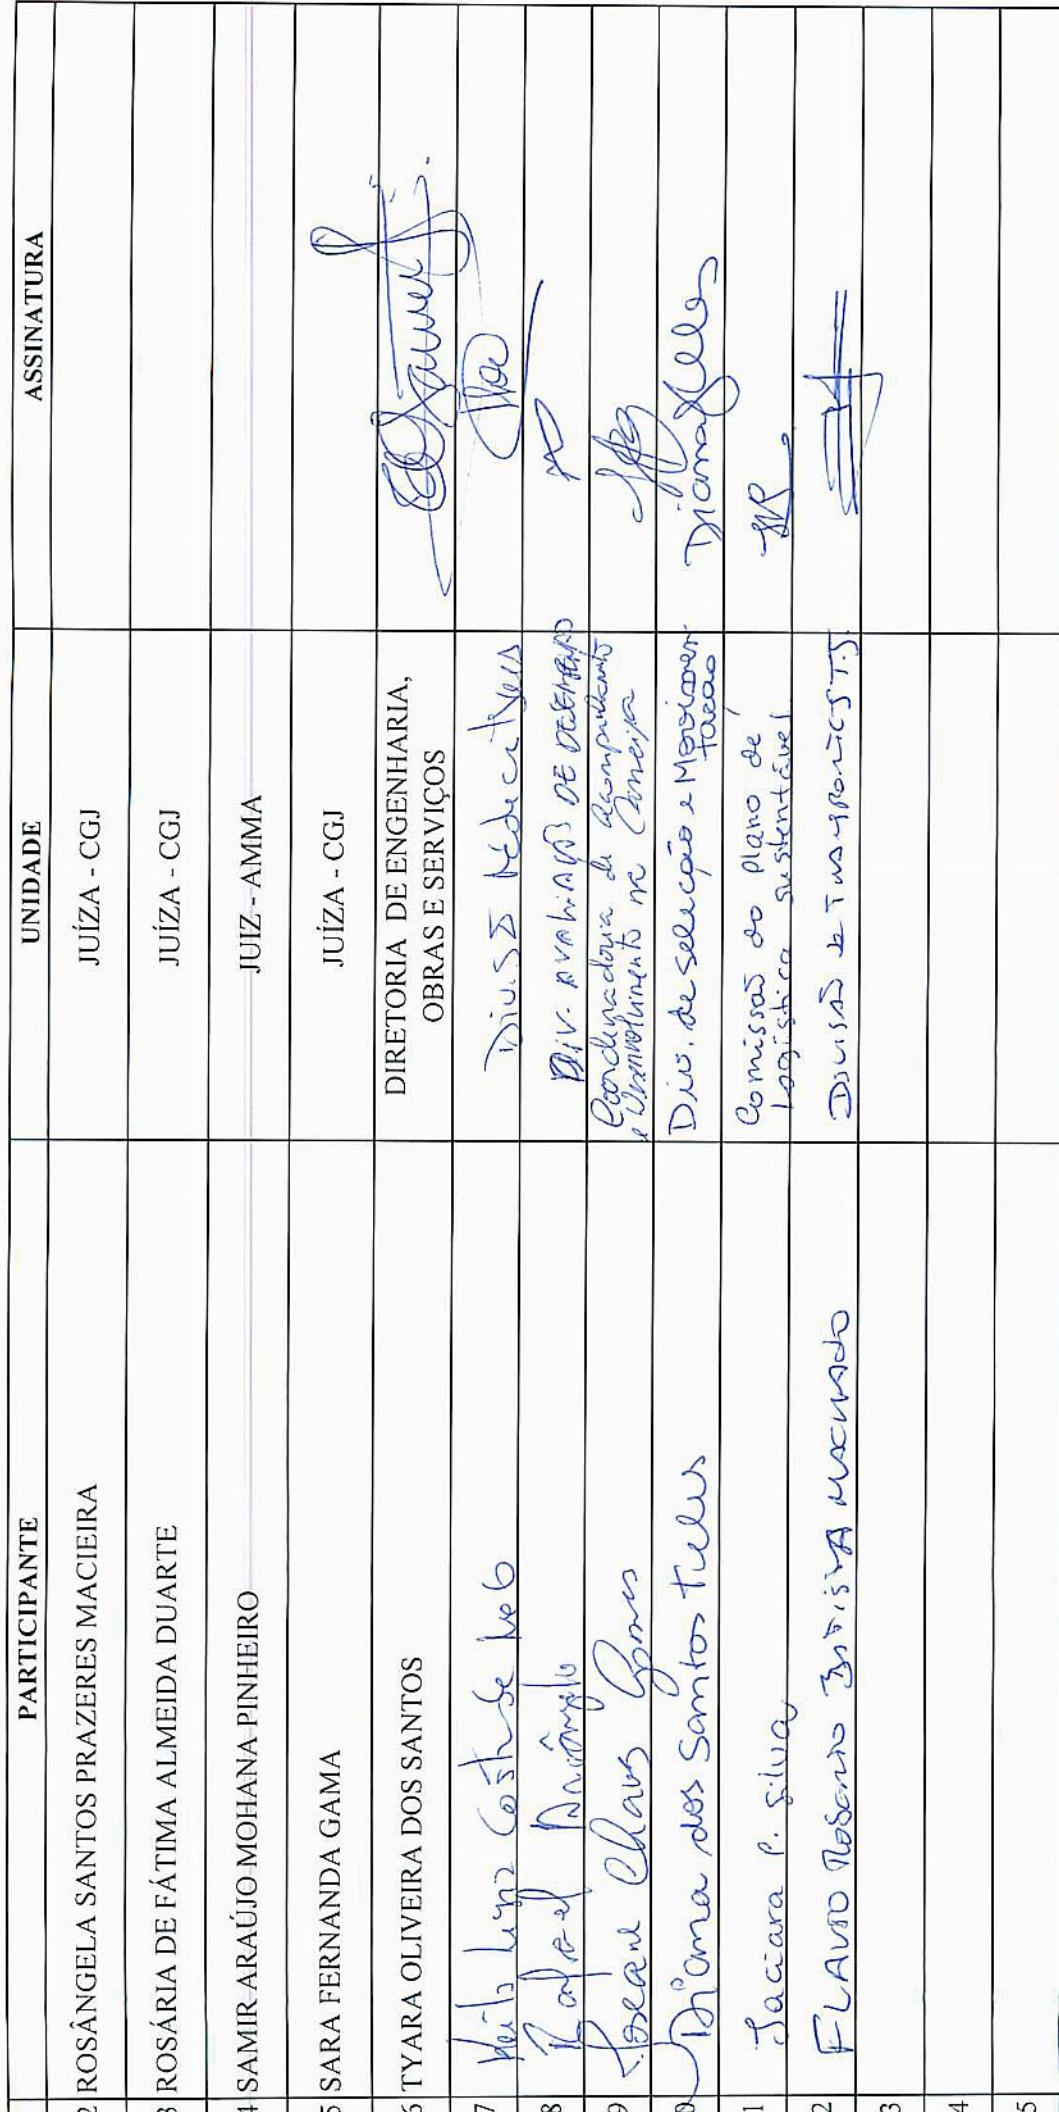 PARTICIPANTE UNIDADE ASSINATURA
2 ROSÂNGELA SANTOS PRAZERES MACIEIRA JUÍZA - CGJ
3 ROSÁRIA DE FÁTIMA ALMEIDA DUARTE JUÍZA - CGJ
4 SAMIR ARAÚJO MOHANA PINHEIRO JUIZ - AMMA
5 SARA FERNANDA GAMA JUÍZA - CGJ
6 TYARA OLIVEIRA DOS SANTOS DIRETORIA DE ENGENHARIA,
OBRAS E SERVIÇOS
7 Luiz Costa
8 Rafael DIV. AVALIAÇÃO DE
9 Chaves Gomes Coordenadoria de Acompanhamento
e Desenvolvimento na Carreira
0 Diana dos Santos Teles Div. de seleção e Movimen-
tação Diana Teles
1 Jaciara P. Silva Comissão do Plano de
Logística sustentável
2 FLAVIO Rosario Batista MACHADO DIVISÃO de Transportes TJ
3
4
5